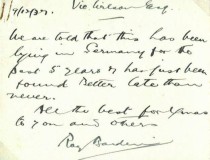 9/12/37. Vic Wilson Esq.
We are told that this has been
lying in Germany for the
past 5 years & has just been
found Better late than
never.
All the best for Xmas
to you and others
Ray